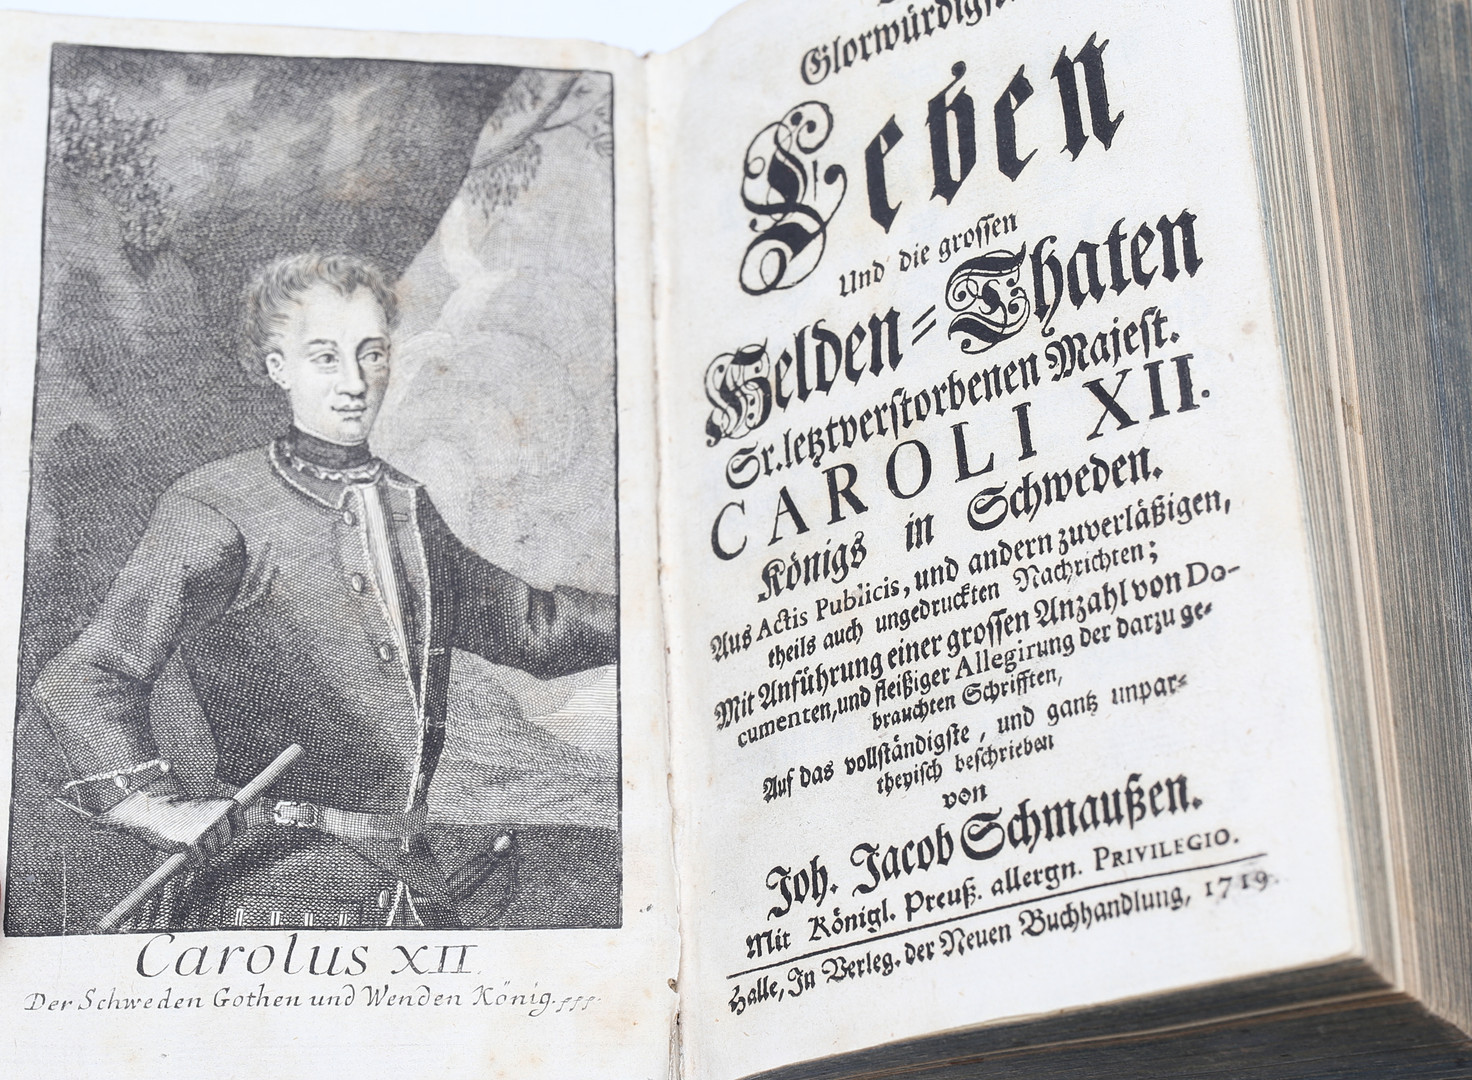 Carolus XII.
Der Schweden Gothen und Wenden König.
Glorwürdigst
Leben
Und die grossen
Helden=Thaten
Sr. letztverstorbenen Majest.
CAROLI XII.
Königs in Schweden.
Aus Actis Publicis, und andern zuverläßigen,
theils auch ungedruckten Nachrichten;
Mit Anführung einer grossen Anzahl von Do-
cumenten, und fleißiger Allegirung der darzu ge=
brauchten Schrifften,
Auf das vollständigste, und gantz unpar=
theyisch beschrieben
von
Joh. Jacob Schmaußen.
Mit Königl. Preuß. allergn. PRIVILEGIO.
Halle, In Verleg. der Neuen Buchhandlung, 1719.